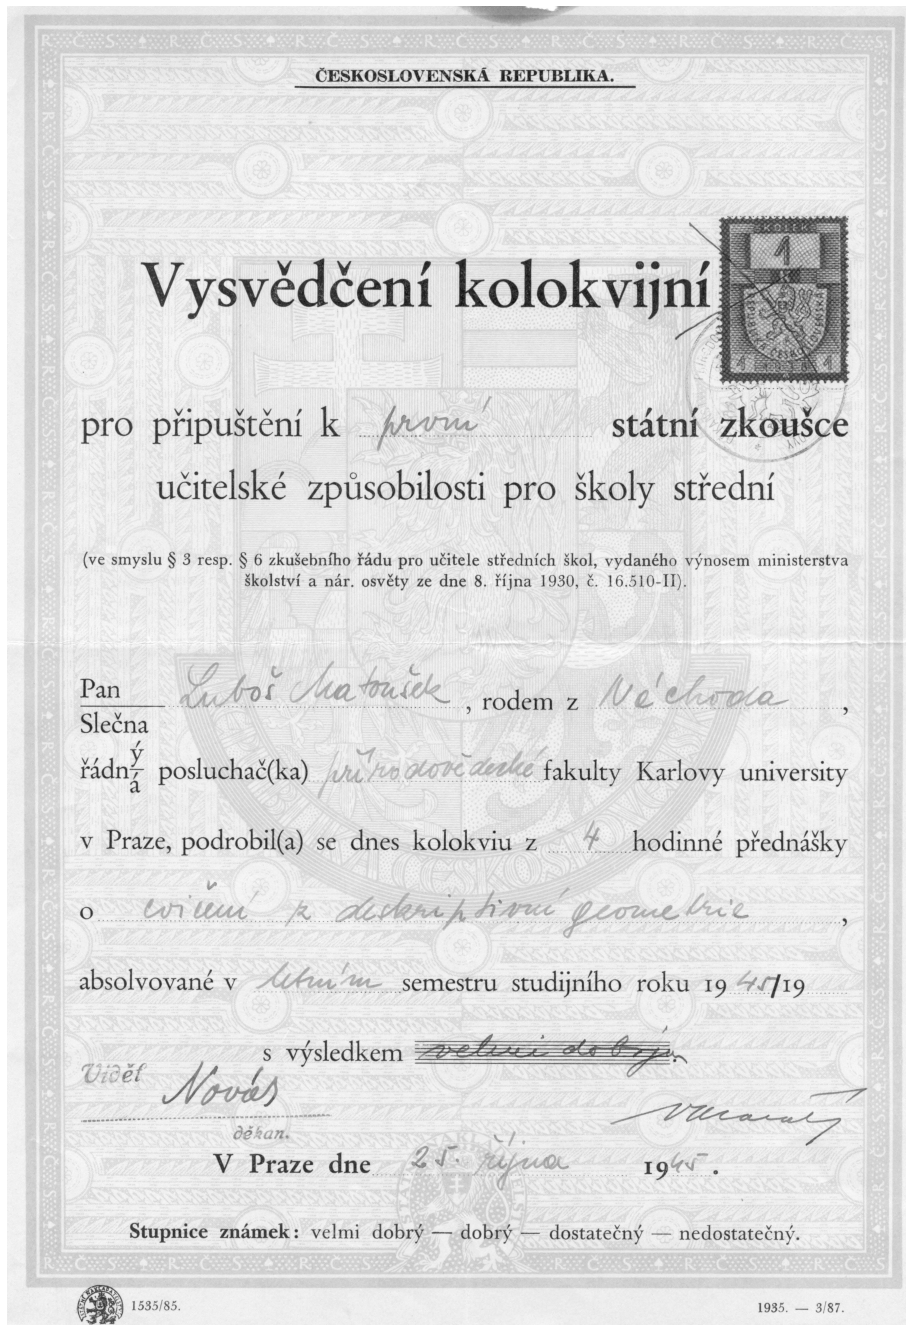 ČESKOSLOVENSKÁ REPUBLIKA.
KOLEK
1
K
Vysvědčení kolokvijní
1 1938 1
pro připuštění k první státní zkoušce
učitelské způsobilosti pro školy střední
(ve smyslu § 3 resp. § 6 zkušebního řádu pro učitele středních škol, vydaného výnosem ministerstva
školství a nár. osvěty ze dne 8. října 1930, č. 16.510-II).
Pan Luboš Matoušek, rodem z Náchoda,
Slečna
řádný/á posluchač(ka) přírodovědecké fakulty Karlovy university
v Praze, podrobil(a) se dnes kolokviu z 4 hodinné přednášky
o cvičení z deskriptivní geometrie,
absolvované v letním semestru studijního roku 1945/19
s výsledkem velmi dobrým.
Viděl Novák
děkan.
V Praze dne 25. října 1945.
Stupnice známek: velmi dobrý — dobrý — dostatečný — nedostatečný.
1535/85.
1935. — 3/87.